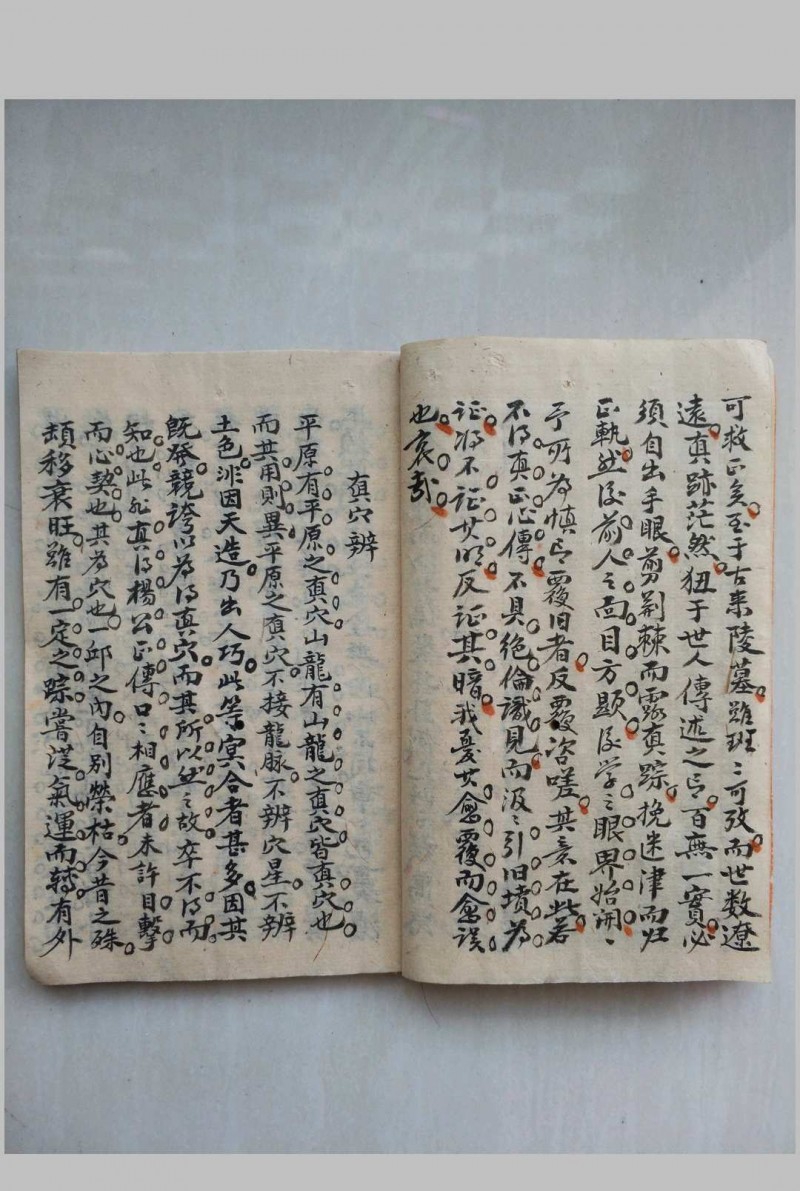 可救正矣至于古来陵墓虽班〻可攷而世数遼
遠真跡茫然狃于世人傳述之言百無一實必
須自出手眼剪荆棘而露真踪挽迷津而归
正軌然後前人之面目方顯後学之眼界始開〻
予所為慎言覆旧者反覆咨嗟其意在此若
不得真正心傳不具绝倫識見而汲〻引旧墳為
证将不证其明反证其暗我憂其愈覆而愈误
也哀哉
真穴辨
平原有平原之真穴山龍有山龍之真穴皆真穴也
而其用則異平原之真穴不接龍脉不辨穴星不辨
土色非因天造乃出人巧此等冥合者甚多因其
既發競誇以為得真穴而其所以然之故卒不得而
知也此非真得楊公正傳口〻相應者未許目擊
而心契也其為穴也一邱之内自别榮枯今昔之殊
頓移衰旺雖有一定之踪嘗從氣運而轉有外